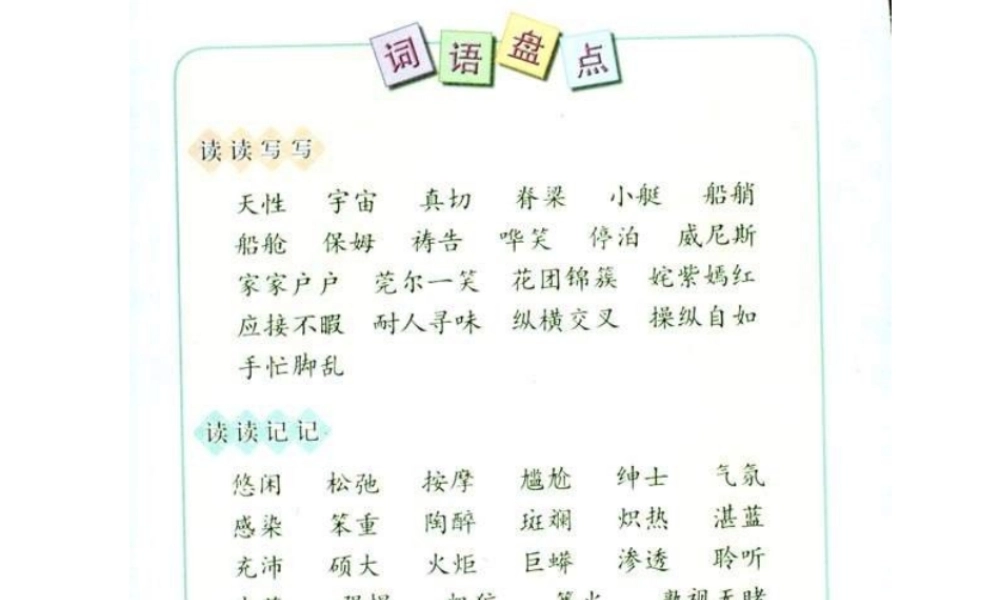 词语盘点
读读写写
天性 宇宙 真切 脊梁 小艇 船艄
船舱 保姆 祷告 哗笑 停泊 威尼斯
家家户户 莞尔一笑 花团锦簇 姹紫嫣红
应接不暇 耐人寻味 纵横交叉 操纵自如
手忙脚乱
读读记记
悠闲 松弛 按摩 尴尬 绅士 气氛
感染 笨重 陶醉 斑斓 炽热 湛蓝
充沛 硕大 火炬 巨蟒 渗透 聆听